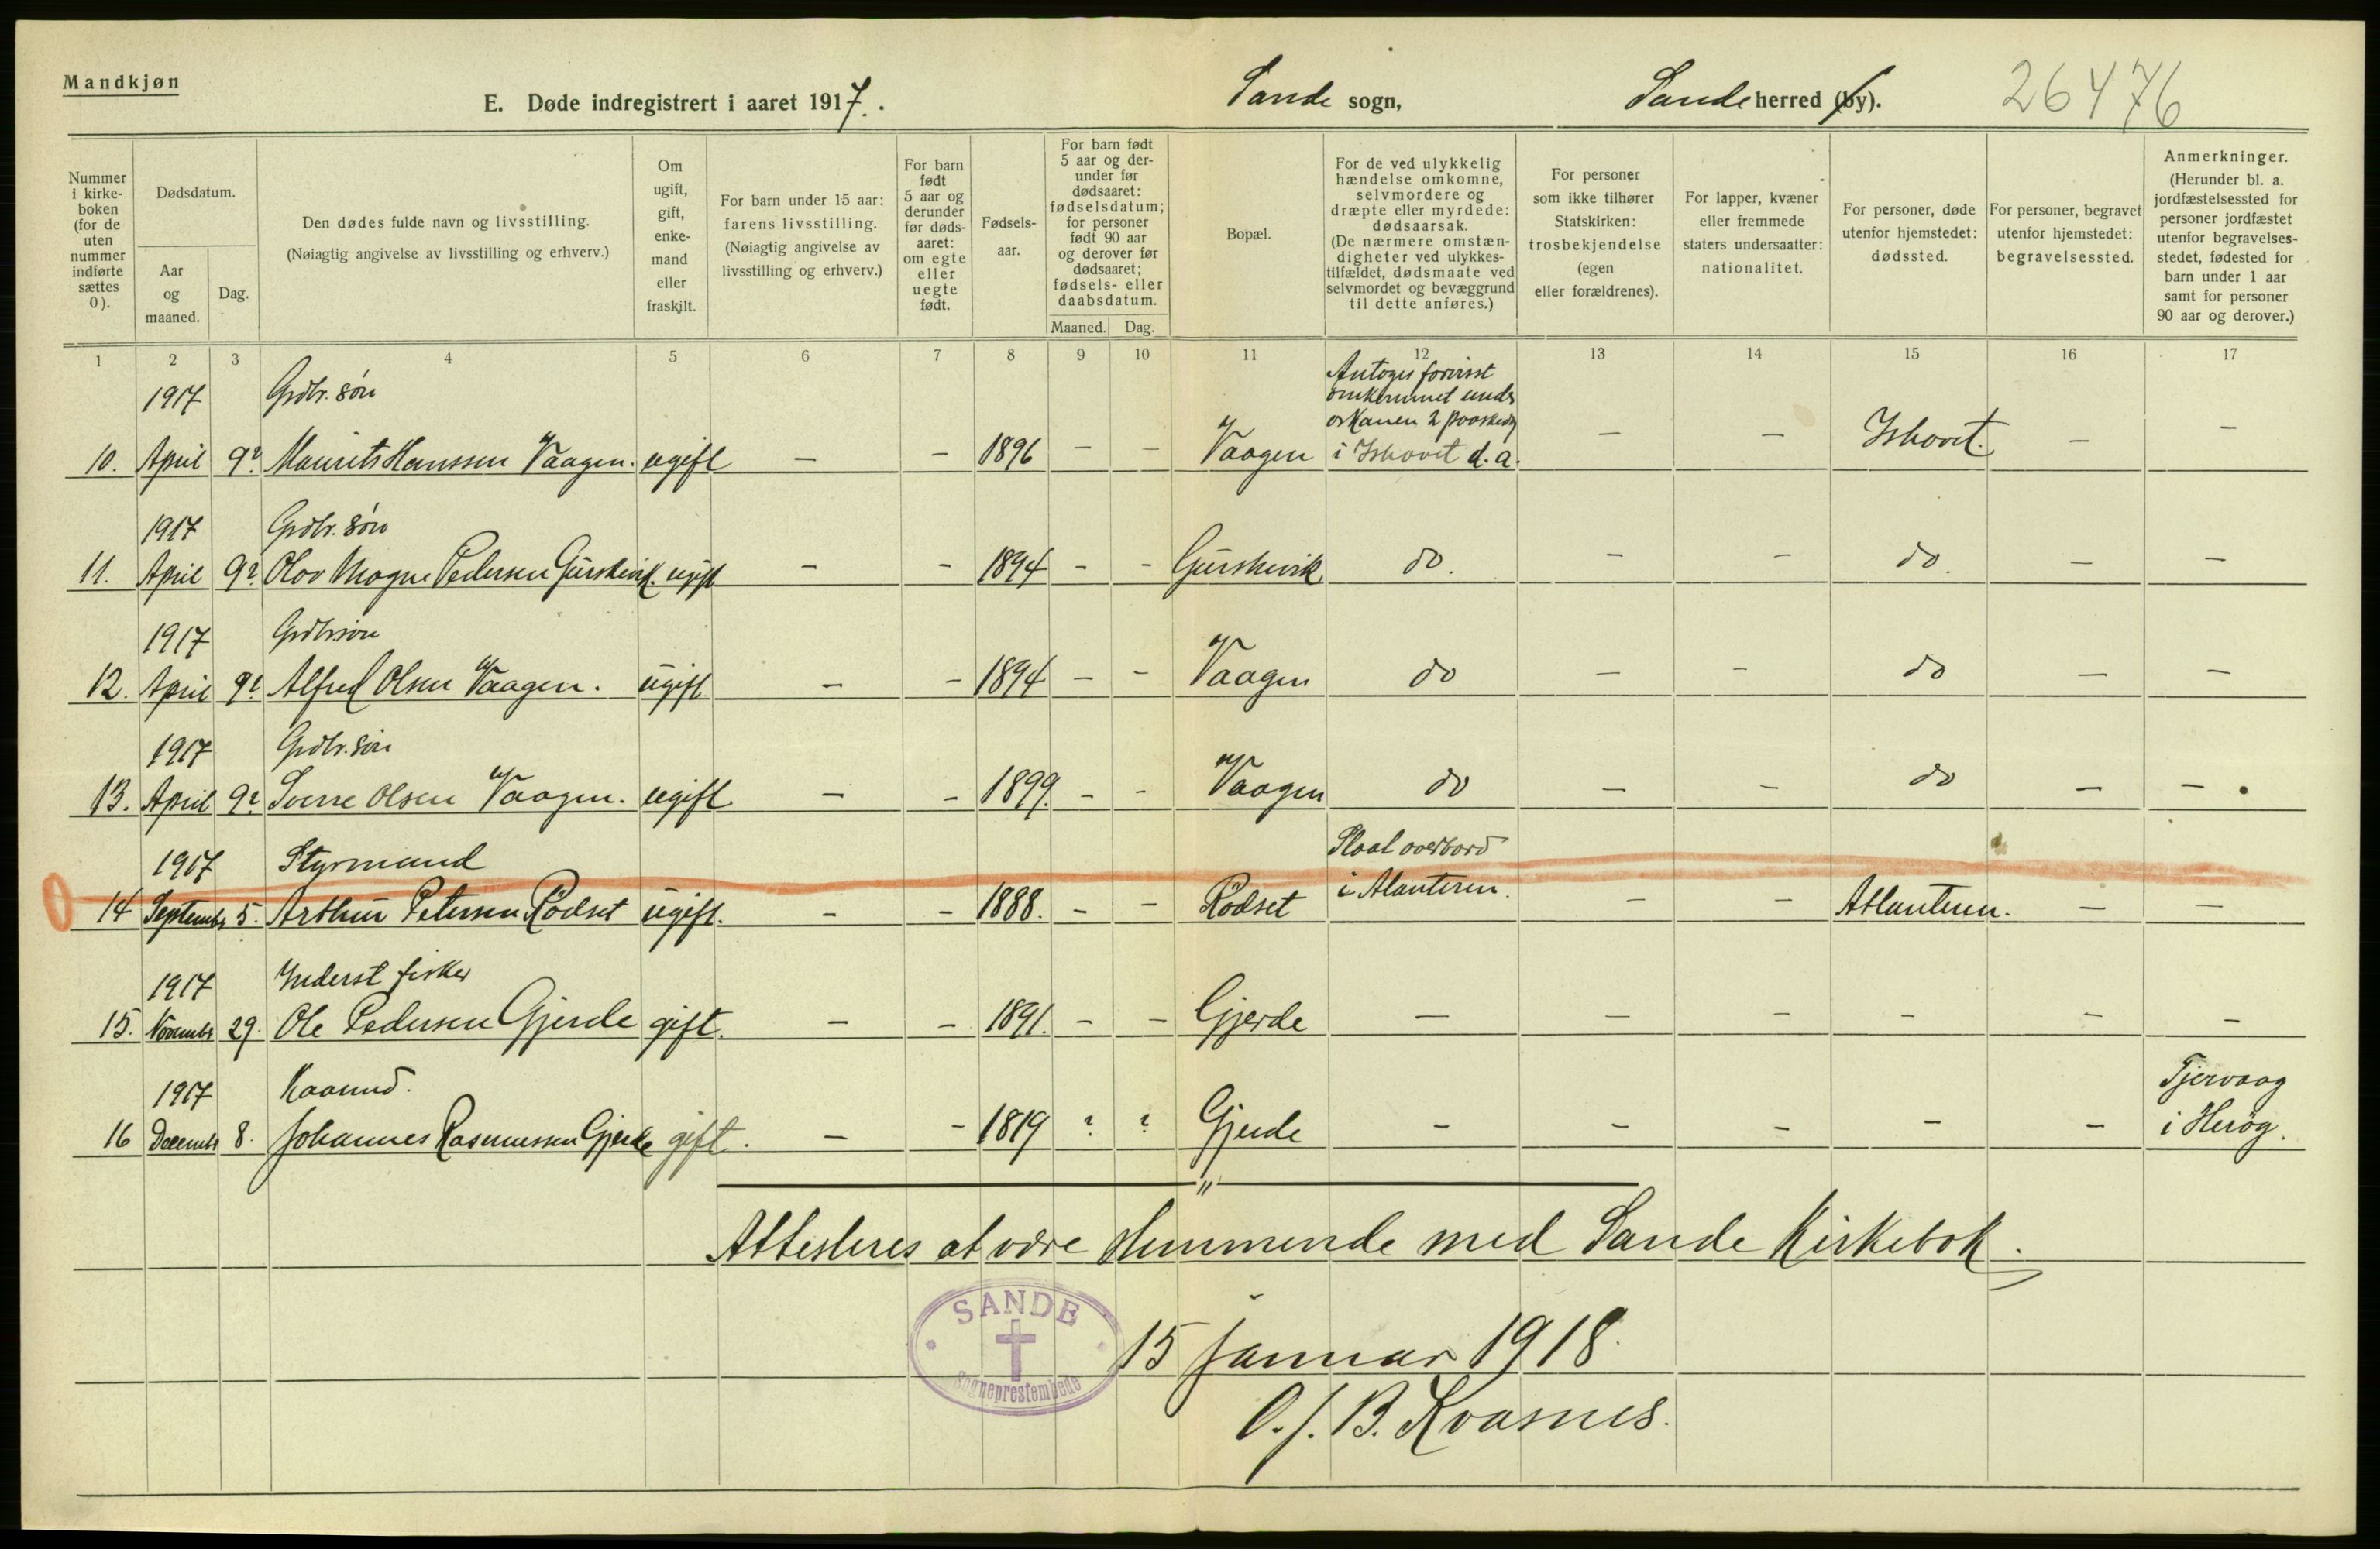 Mandkjøn
E. Døde indregistrert i aaret 1917.
Sande sogn,
Sande herred (by).
26476
Nummer
i kirke-
boken
(for de
uten
nummer
indførte
sættes
0).
Dødsdatum.
Aar
og
maaned.
Dag.
Den dødes fulde navn og livsstilling.
(Nøiagtig angivelse av livsstilling og erhverv.)
Om
ugift,
gift,
enke-
mand
eller
fraskilt.
For barn under 15 aar:
farens livsstilling.
(Nøiagtig angivelse av
livsstilling og erhverv.)
For barn
født
5 aar og
derunder
før døds-
aaret:
om egte
eller
uegte
født.
Fødsels-
aar.
For barn født
5 aar og der-
under før
dødsaaret:
fødselsdatum;
for personer
født 90 aar
og derover før
dødsaaret;
fødsels- eller
daabsdatum.
Maaned. Dag.
Bopæl.
For de ved ulykkelig
hændelse omkomne,
selvmordere og
dræpte eller myrdede:
dødsaarsak.
(De nærmere omstæn-
digheter ved ulykkes-
tilfældet, dødsmaate ved
selvmordet og bevæggrund
til dette anføres.)
For personer
som ikke tilhører
Statskirken:
trosbekjendelse
(egen
eller forældrenes).
For lapper, kvæner
eller fremmede
staters undersaatter:
nationalitet.
For personer, døde
utenfor hjemstedet:
dødssted.
For personer, begravet
utenfor hjemstedet:
begravelsessted.
Anmerkninger.
(Herunder bl. a.
jordfæstelsessted for
personer jordfæstet
utenfor begravelses-
stedet, fødested for
barn under 1 aar
samt for personer
90 aar og derover.)
1 2 3 4 5 6 7 8 9 10 11 12 13 14 15 16 17
1917 Grdbr. søn
Antages forvisst
omkommet under
orkanen 2 paaskedag
10. April 9? Maurits Hanssen Vaagen. ugift – – 1896 – – Vaagen i Ishavet d. a. – – Ishavet. – –
1917 Grdbr. søn
11. April 9? Olav Magne Pedersen Gurskevik. ugift – – 1894 – – Gurskevik do. – – do. – –
1917 Grdbr.søn
12. April 9? Alfred Olsen Vaagen. ugift – – 1894 – – Vaagen do – – do – –
1917 Grdbr. søn
13. April 9? Sverre Olsen Vaagen. ugift – – 1899. – – Vaagen do – – do – –
1917 Styrmand
Slaat overbord
i Atlanteren.
14 September 5. Arthur Petersen Rødset ugift. – – 1888. – – Rødset – – Atlanteren. – –
1917 Inderst fisker
15. November 29. Ole Pedersen Gjerde gift. – – 1891. – – Gjerde – – – – – –
1917 Kaarmd.
Tjervaag
16 December 8. Johannes Rasmussen Gjerde gift. – – 1819 ? ? Gjerde – – – – – i Herøy.
Attesteres at være stemmende med Sande Kirkebok.
SANDE
Sogneprestembede
15 januar 1918.
O. J. B. Kvasnes.